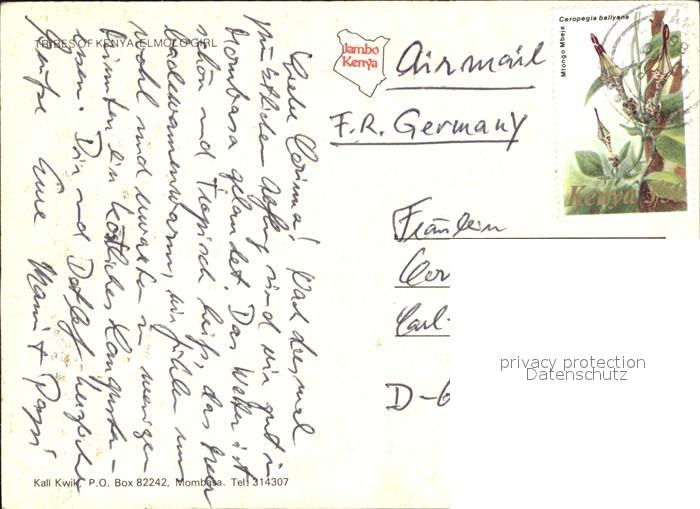 TRIBES OF KENYA, ELMOLO GIRL
Jambo
Kenya
Airmail
F.R. Germany
Ceropegia ballyana
Mtongo Mbeja
Kenya
Fräulein
Cor
Carl-
D-6
privacy protection
Datenschutz
Liebe Corinna! Nach diesmal
pünktlichem Abflug sind wir gut in
Mombasa gelandet. Das Wetter ist
schön und tropisch heiß, das Meer
badewannenwarm, wir fühlen uns
wohl und werden in wenigen
Minuten ein köstliches Langusten-
essen. Dir und Detlef herzliche
Grüße Eure Mami + Papi
Kall Kwik, P.O. Box 82242, Mombasa. Tel: 314307